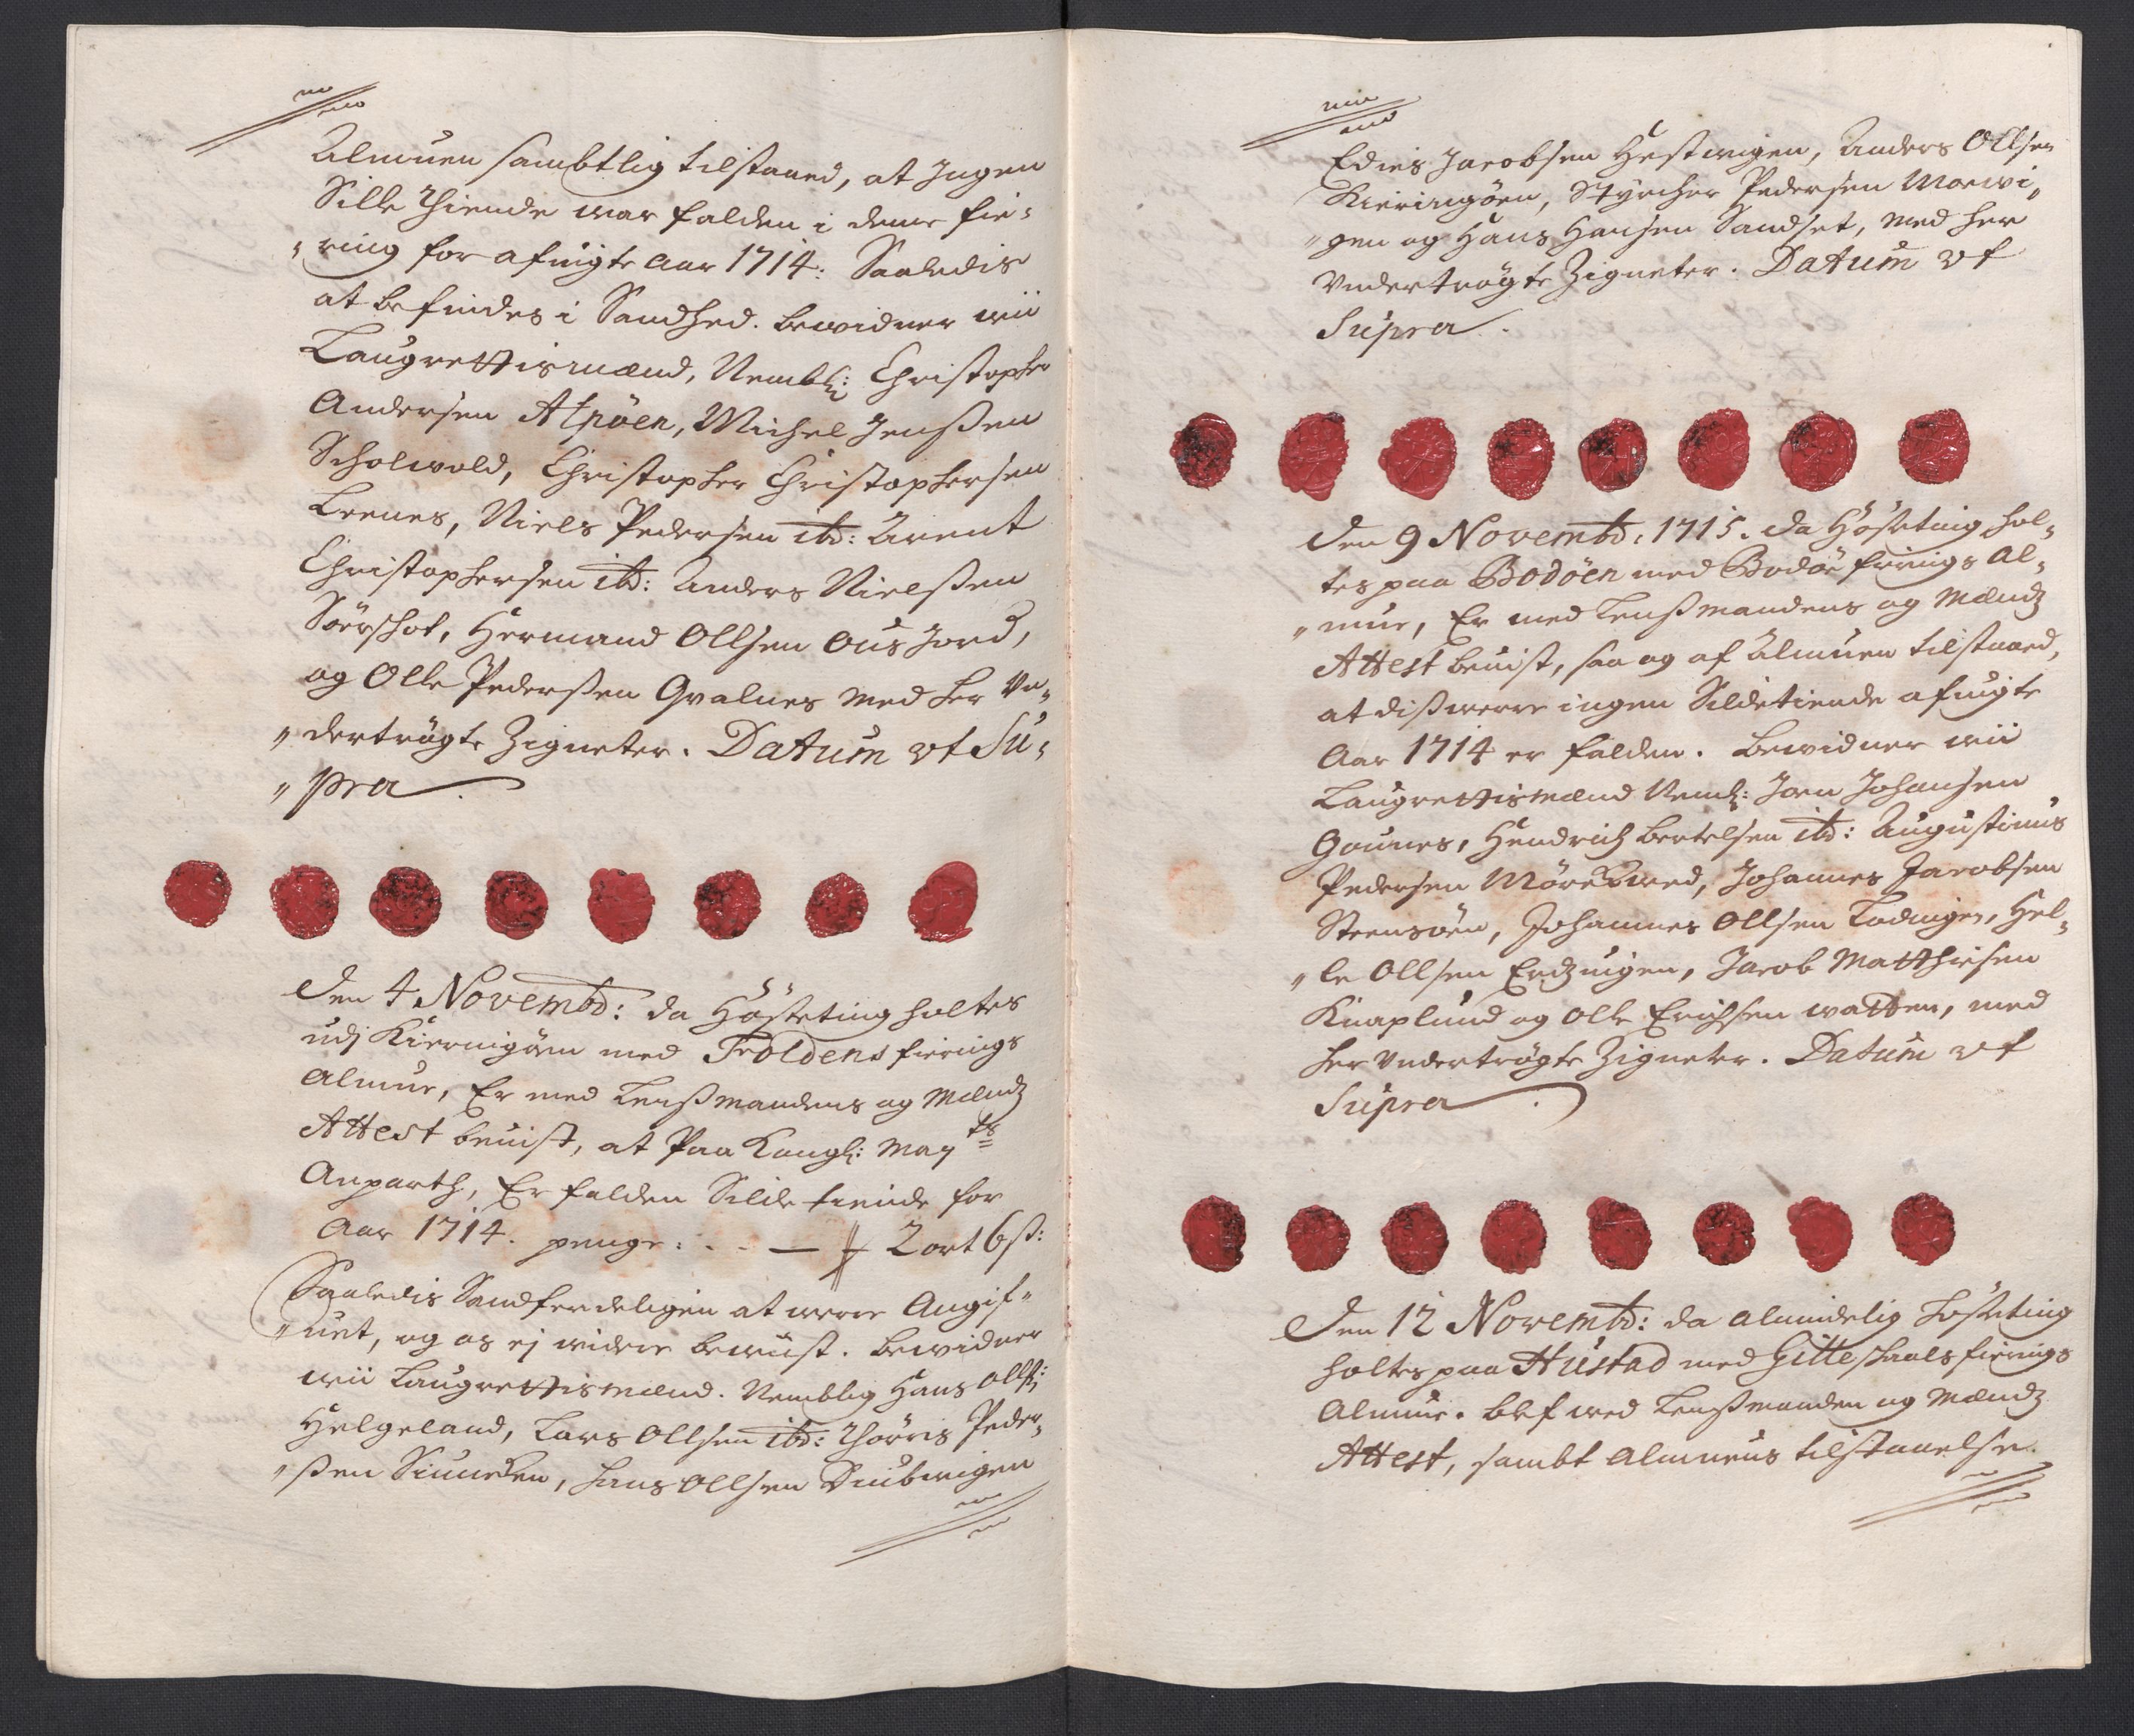 Almuen sambtlig tilstaaed, at Ingen
Sille Thiende war falden i denne fie¬
"ring for afuigte aar 1714: Saaledis
at befindes i Sandhed. bewidner wii
Laugrettismænd, Nembl: Christopher
Andersen Alpöen, Michel Jenßen
Scholwold, Christopher Christophersen
Leenes, Niels Pedersen ibd: Arent
Christophersen ibd: Anders Nielßen
Hermand Ollsen Ous Jord,
og Olle Pederßen Qvalnes med her Un¬
"dertrögte Zigneter. Datum vt Su¬
"pra.
Den 4 Novembd: da Hösteting holtes
udj Kieringöen med Foldens fierings
Almue, Er med Lenßmandens og Mændz
Attest beuist, at Paa Kongl: May ts
Anparth, Er falden Silde tiende for
Aar 1714. penge: . . — 2 ort 6 ß:
Saaledis Sandferdeligen at were Angif¬
"uet, og os ej widere bewust. Bewidner
wii Laugrettismænd. Nemblig Hans Ollß:
Helgeland, Lars Ollsen ibd: Thörris Peder¬
"ßen hans Ollsen
Edies Jacobsen Hestwigen, Anders Ollsen
Kieringöen, Styrcher Pedersen Morwi¬
"gen og Hans Hansen Sandset, med her
Undertrögte Zigneter. Datum vt
Supra.
Den 9 Novembd: 1715. da Hösteting hol¬
tes paa Bodöen med Bodöe fierings Al¬
"mue, Er med Lenßmandens og Mændz
Attest beuist, saa og af Almuen tilstaaed,
at dißwerre ingen Sildetiende afuigte
Aar 1714 er falden. Bewidner wii
Laugrettismænd Neml: Joen Johansen
Gounes, Hendrich Bertelsen ibd: Augustinus
Pedersen Mörchwed, Johannes Jacobsen
Steensöen, Johannes Ollsen Lödingen, Hel¬
"le Ollsen Jacob Matthisen
Knaplund og Olle Erichsen Watten, med
her Undertrögte Zigneter. Datum vt
Supra.
Den 12 Novembd: da almindelig Hösteting
holtes paa Hustad med Gilleschaals fierings
Almue. Blef med Lenßmanden og Mændz
Attest, sambt Almuens tilstaaelse.